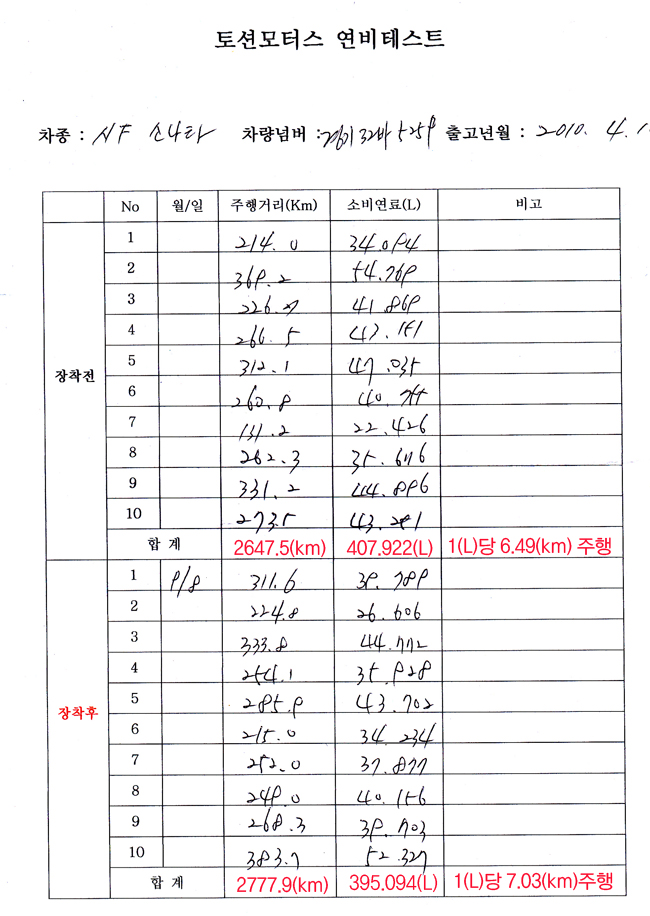 토션모터스 연비테스트
차종 : NF 소나타 차량넘버 : 경기32바5259 출고년월 : 2010. 4. 1
No 월/일 주행거리(Km) 소비연료(L) 비고
장착전
1 214.0 34.094
2 369.2 54.769
3 226.7 41.869
4 266.5 43.151
5 312.1 47.035
6 260.8 40.755
7 131.2 22.426
8 262.3 35.646
9 331.2 44.896
10 273.5 43.281
합 계 2647.5(km) 407.922(L) 1(L)당 6.49(km) 주행
장착후
1 9/8 311.6 39.789
2 224.8 26.606
3 333.8 44.772
4 254.1 35.928
5 285.9 43.702
6 215.0 34.234
7 252.0 37.877
8 249.0 40.156
9 268.3 39.703
10 383.7 52.327
합 계 2777.9(km) 395.094(L) 1(L)당 7.03(km)주행